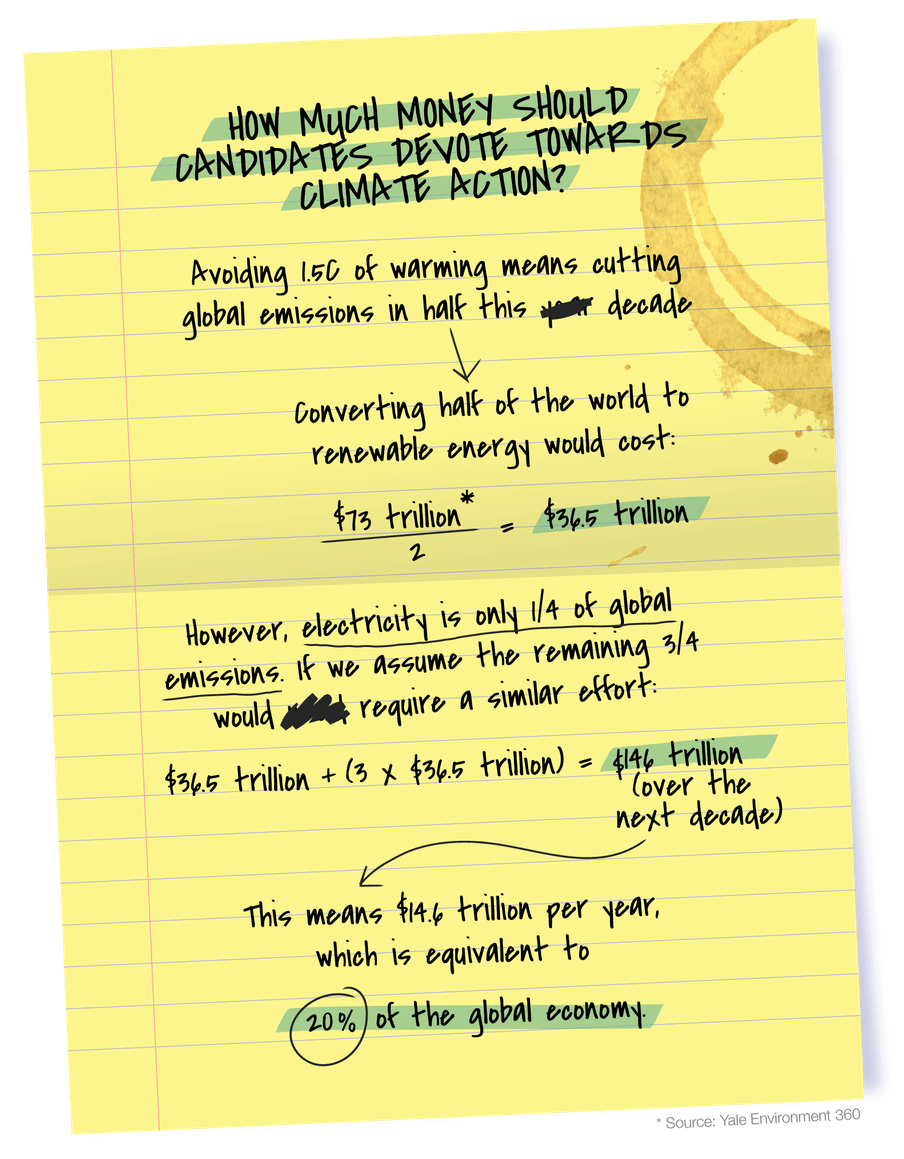 HOW MUCH MONEY SHOULD
CANDIDATES DEVOTE TOWARDS
CLIMATE ACTION?
Avoiding 1.5C of warming means cutting
global emissions in half this decade
Converting half of the world to
renewable energy would cost:
$73 trillion* = $36.5 trillion
2
However, electricity is only 1/4 of global
emissions. If we assume the remaining 3/4
would require a similar effort:
$36.5 trillion + (3 x $36.5 trillion) = $146 trillion
(over the
next decade)
This means $14.6 trillion per year,
which is equivalent to
20% of the global economy.
* Source: Yale Environment 360